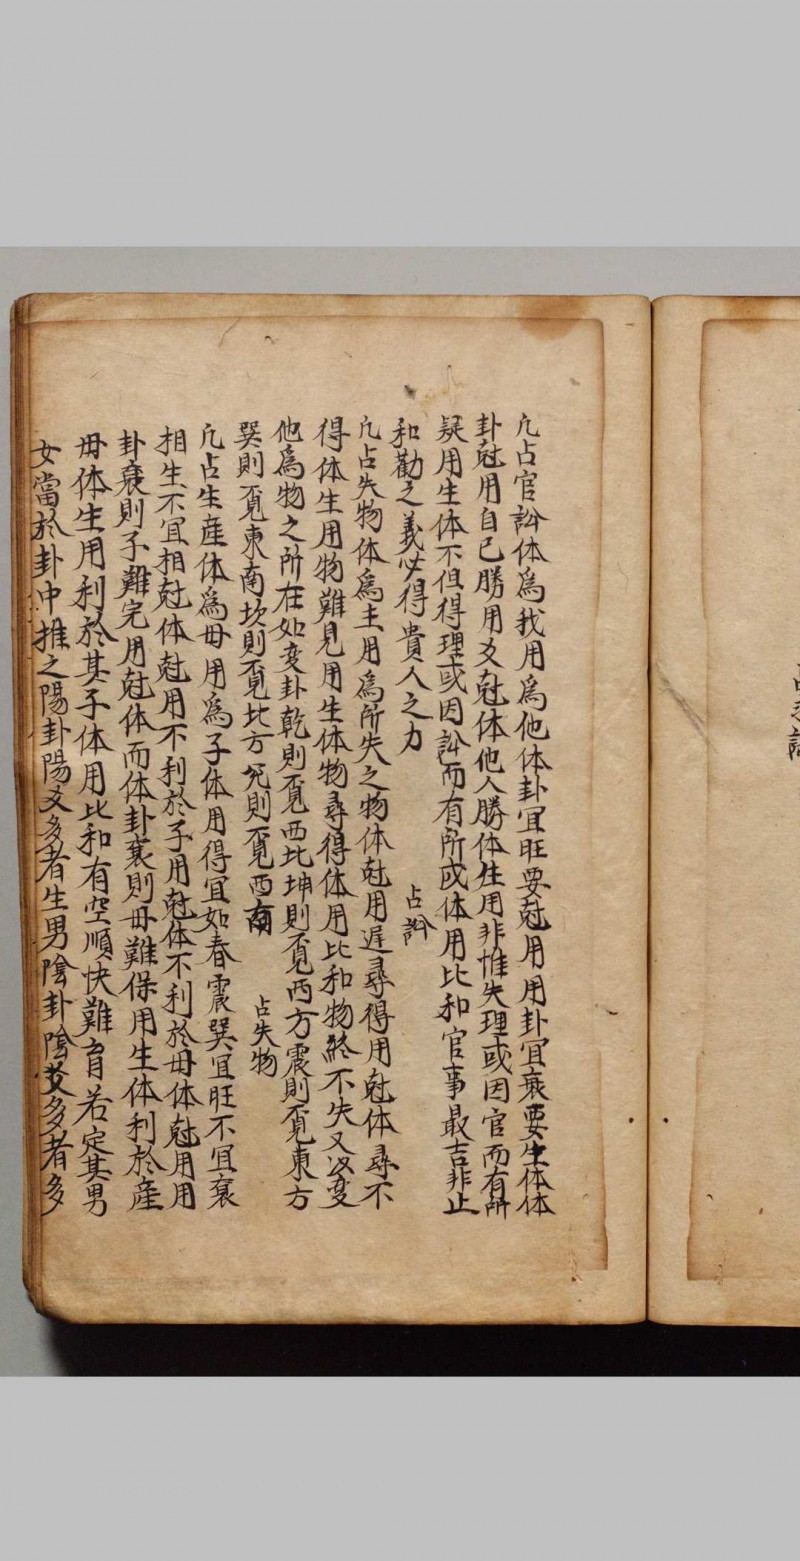 凢占官訟体爲我用爲他体卦宜旺要尅用用卦宜衰要生体体
卦尅用自己勝用爻尅体他人勝体生用非惟失理或因官而有所
疑用生体不但得理或因訟而有所或体用比和官事最吉非止
和勸之義必得貴人之力
占訟
凢占失物体爲主用爲所失之物体尅用遲尋得用尅体尋不
得体生用物難見用生体物尋得体用比和物終不失又以変
他爲物之所在如変卦乾則覔西北坤則覔西方震則覔東方
巽則覔東南坎則覔北方 則覔西南
占失物
凢占生産体爲母用爲子体用得宜如春震巽宜旺不宜衰
相生不宜相尅体尅用不利於子用尅体不利於母体尅用用
卦衰則子難完用尅体而体卦衰則母難保用生体利於産
母体生用利於其子体用比和有空順快難育若定其男
女當於卦中推之陽卦陽爻多者生男陰卦陰爻多者多
占